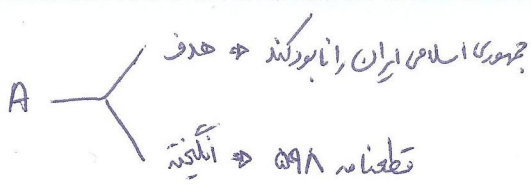 جمهوری اسلامی ایران را نابود کند ⇐ هدف
A
قطعنامه ۵۹۸ ⇐ انگیخته